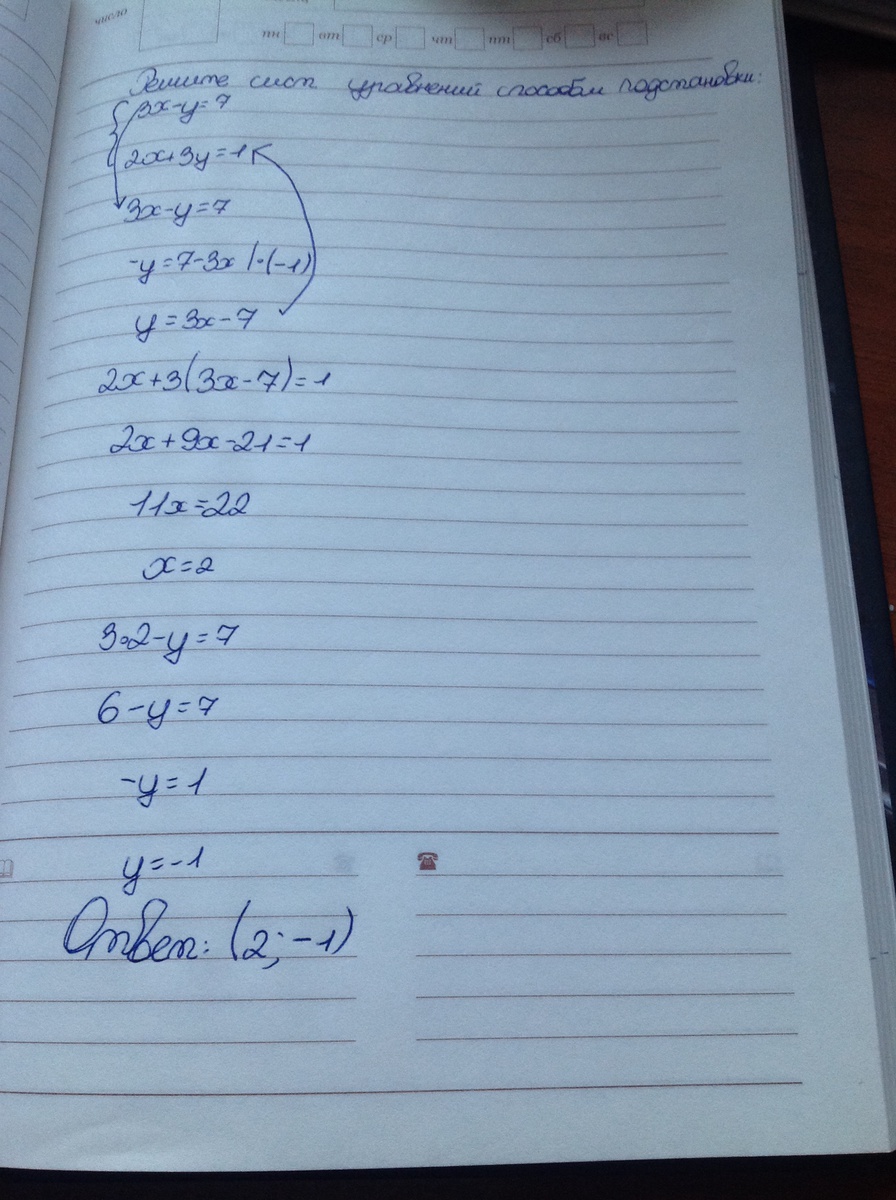 число
пн вт ср чт пт сб вс
Решите сист уравнений способом подстановки:
3x-y=7
2x+3y=1
3x-y=7
-y=7-3x |·(-1)
y=3x-7
2x+3(3x-7)=1
2x+9x-21=1
11x=22
x=2
3·2-y=7
6-y=7
-y=1
y=-1
Ответ: (2;-1)